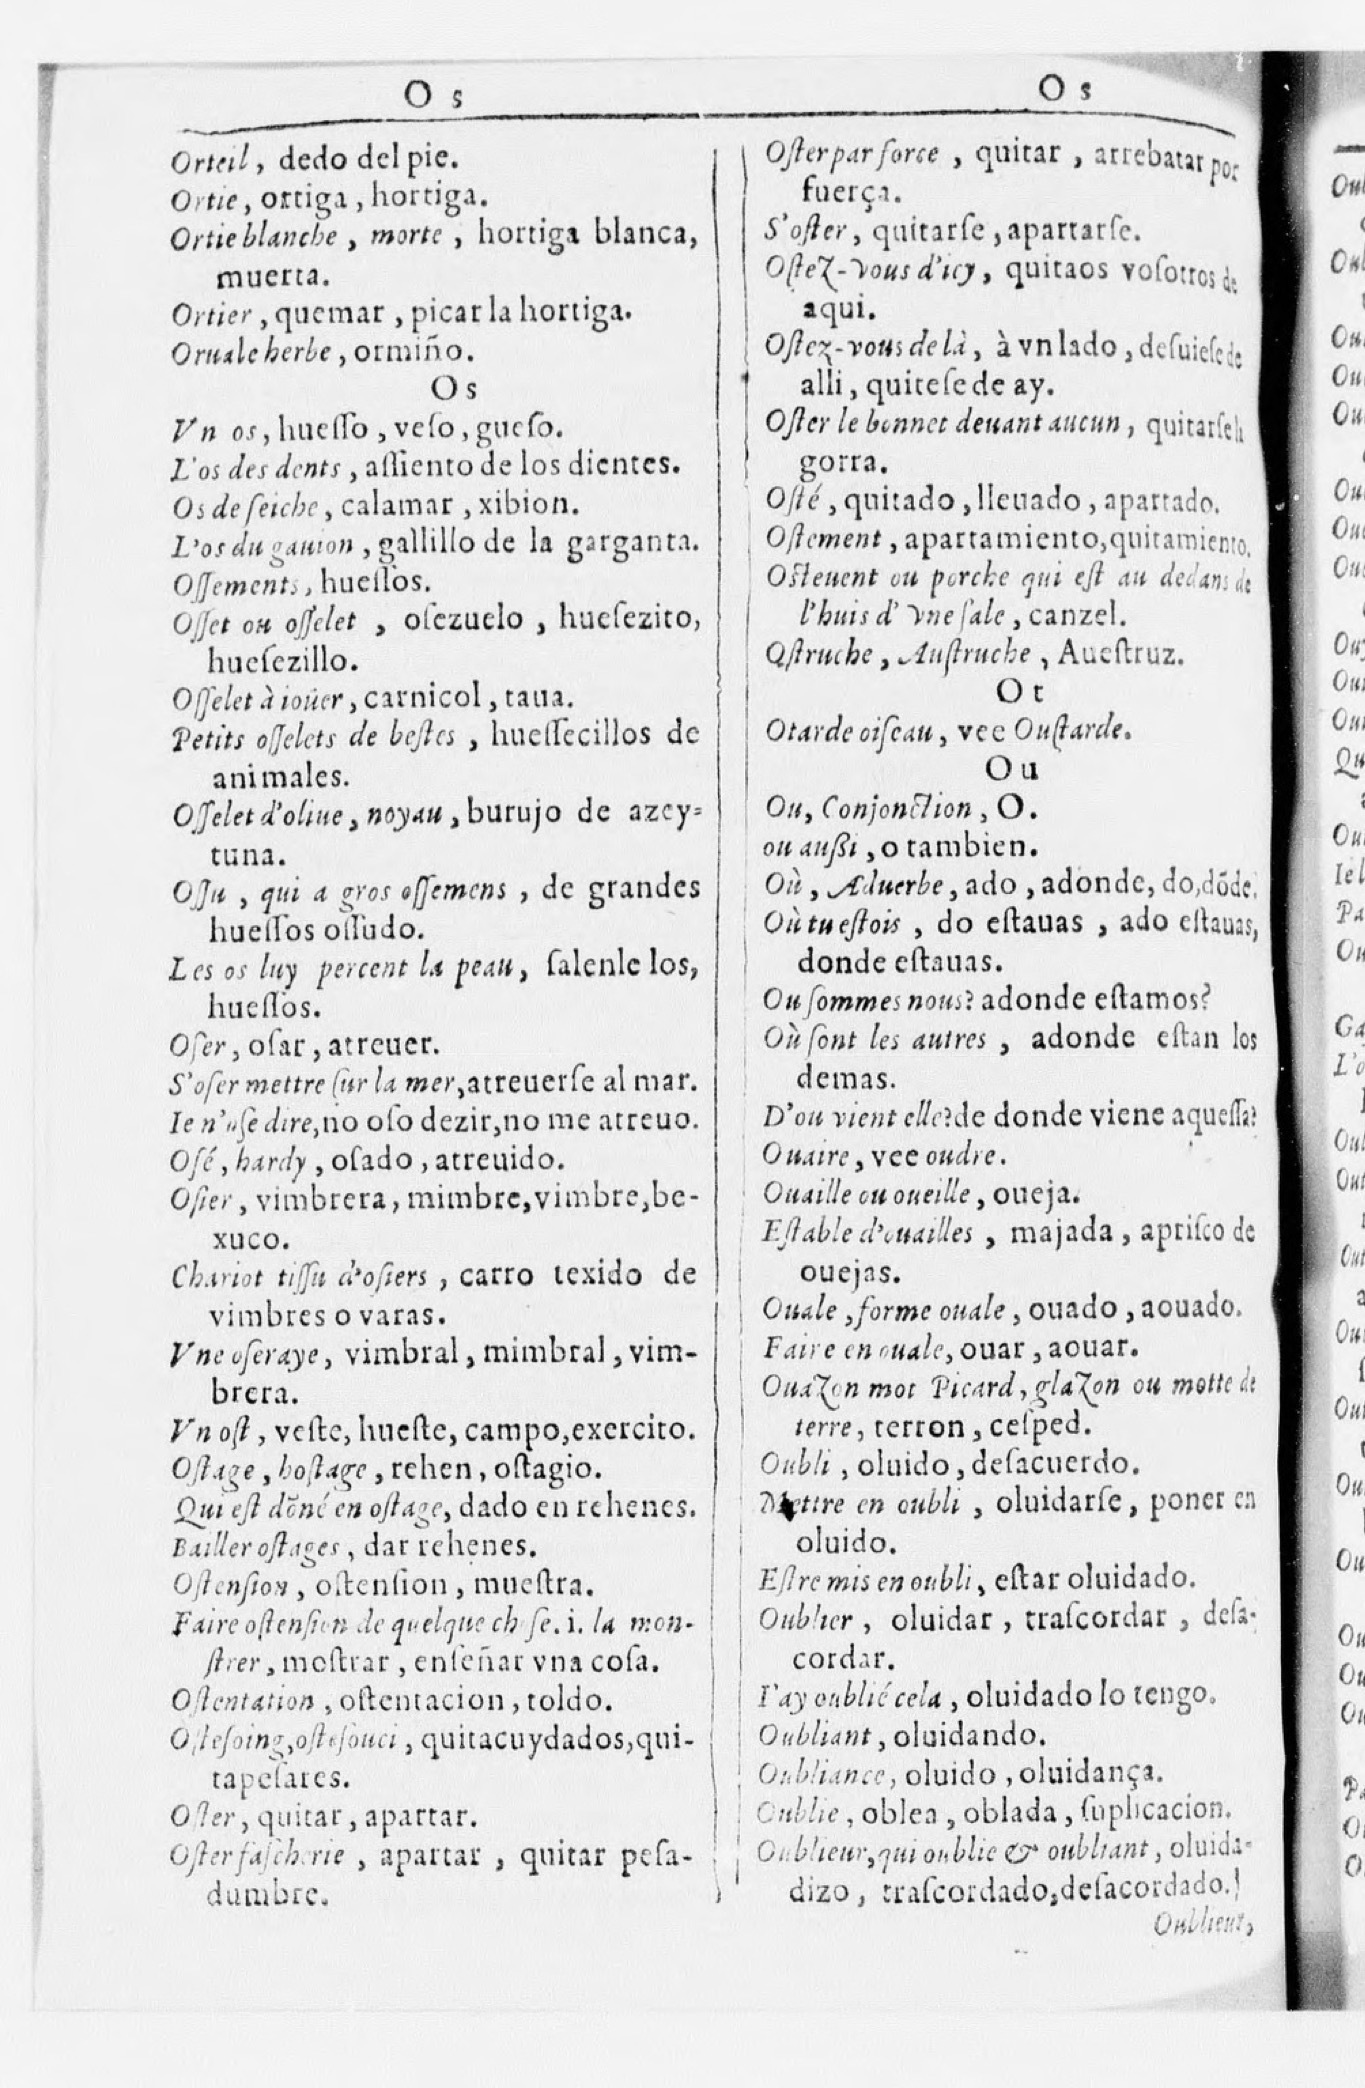 O s
Orteil, dedo del pie.
Ortie, ortiga, hortiga.
Ortie blanche, morte, hortiga blanca,
muerta.
Ortier, quemar, picar la hortiga.
Oruale herbe, ormiño.
O s
Vn os, hueſſo, veſo, gueſo.
L'os des dents, aſſiento de los dientes.
Os de ſeiche, calamar, xibion.
L'os du gauion, gallillo de la garganta.
Oſſements, hueſſos.
Oſſet ou oſſelet, oſezuelo, hueſezito,
hueſezillo.
Oſſelet à ioüer, carnicol, taua.
Petits oſſelets de beſtes, hueſſecillos de
animales.
Oſſelet d'oliue, noyau, burujo de azey-
tuna.
Oſſu, qui a gros oſſemens, de grandes
hueſſos oſſudo.
Les os luy percent la peau, ſalenle los,
hueſſos.
Oſer, oſar, atreuer.
S'oſer mettre ſur la mer, atreuerſe al mar.
Ie n'oſe dire, no oſo dezir, no me atreuo.
Oſé, hardy, oſado, atreuido.
Oſier, vimbrera, mimbre, vimbre, be-
xuco.
Chariot tiſſu d'oſiers, carro texido de
vimbres o varas.
Vne oſeraye, vimbral, mimbral, vim-
brera.
Vn oſt, veſte, hueſte, campo, exercito.
Oſtage, hoſtage, rehen, oſtagio.
Qui eſt dõné en oſtage, dado en rehenes.
Bailler oſtages, dar rehenes.
Oſtenſion, oſtenſion, mueſtra.
Faire oſtenſion de quelque choſe. i. la mon-
ſtrer, moſtrar, enſeñar vna coſa.
Oſtentation, oſtentacion, toldo.
Oſteſoing, oſteſouci, quitacuydados, qui-
tapeſares.
Oſter, quitar, apartar.
Oſter faſcherie, apartar, quitar peſa-
dumbre.
O s
Oſter par force, quitar, arrebatar por
fuerça.
S'oſter, quitarſe, apartarſe.
Oſtez-vous d'icy, quitaos voſotros de
aqui.
Oſtez-vous de là, à vn lado, deſuieſe de
alli, quiteſe de ay.
Oſter le bonnet deuant aucun, quitarſe la
gorra.
Oſté, quitado, lleuado, apartado.
Oſtement, apartamiento, quitamiento.
Oſteuent ou porche qui eſt au dedans de
l'huis d'vne ſale, canzel.
Oſtruche, Auſtruche, Aueſtruz.
O t
Otarde oiſeau, vee Ouſtarde.
O u
Ou, Conjonction, O.
ou außi, o tambien.
Où, Aduerbe, ado, adonde, do, dõde.
Où tu eſtois, do eſtauas, ado eſtauas,
donde eſtauas.
Ou ſommes nous? adonde eſtamos?
Où ſont les autres, adonde eſtan los
demas.
D'ou vient elle? de donde viene aqueſſa?
Ouaire, vee oudre.
Ouaille ou oueille, oueja.
Eſtable d'ouailles, majada, apriſco de
ouejas.
Ouale, forme ouale, ouado, aouado.
Faire en ouale, ouar, aouar.
Ouazon mot Picard, glazon ou motte de
terre, terron, ceſped.
Oubli, oluido, deſacuerdo.
Mettre en oubli, oluidarſe, poner en
oluido.
Eſtre mis en oubli, eſtar oluidado.
Oublier, oluidar, traſcordar, deſa-
cordar.
I'ay oublié cela, oluidado lo tengo.
Oubliant, oluidando.
Oubliance, oluido, oluidança.
Oublie, oblea, oblada, ſuplicacion.
Oublieur, qui oublie & oubliant, oluida-
dizo, traſcordado, deſacordado.
Oublieux,